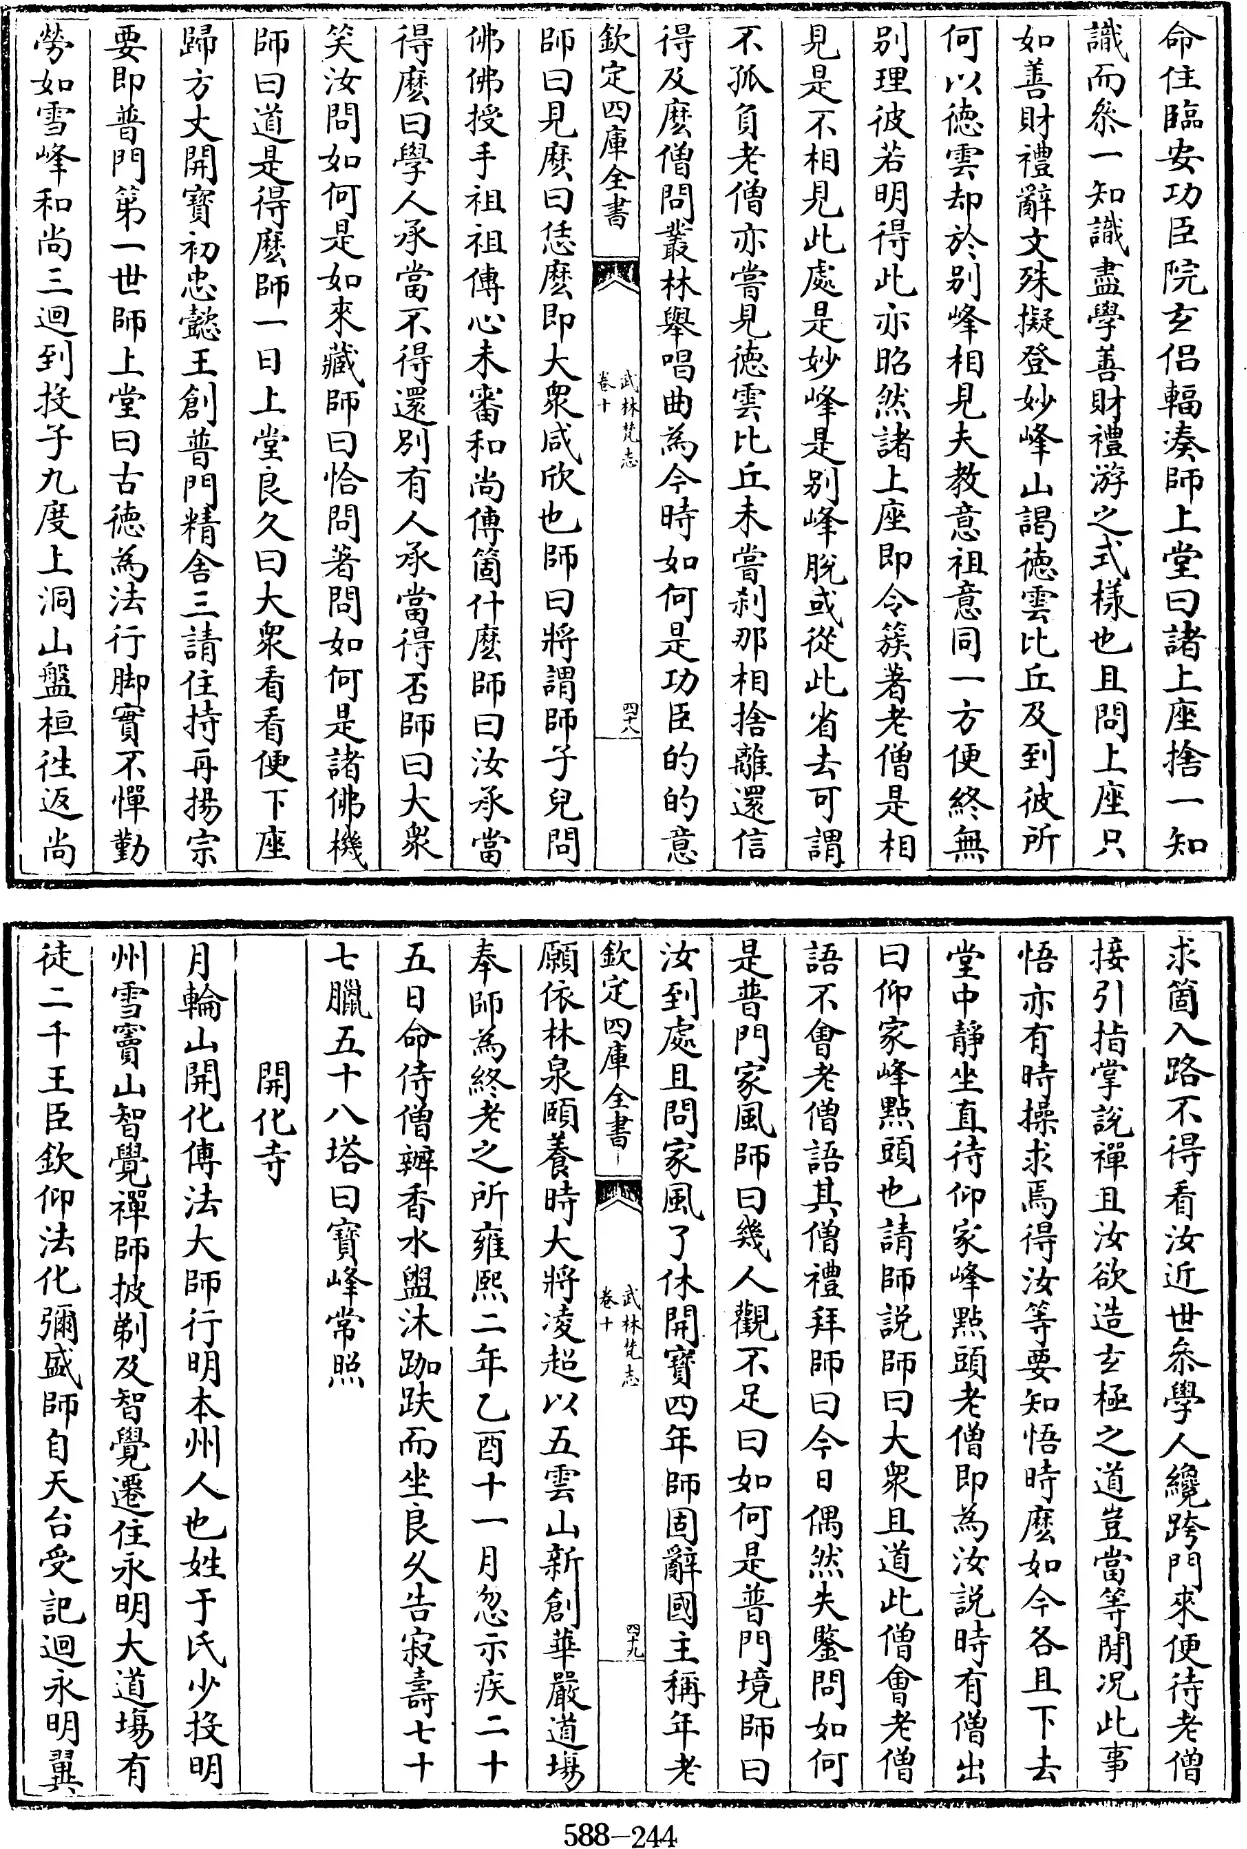 命住臨安功臣院玄侣輻凑師上堂曰諸上座捨一知
識而叅一知識盡學善財禮游之式様也且問上座只
如善財禮辭文殊擬登妙峰山謁徳雲比丘及到彼所
何以徳雲却於别峰相見夫教意祖意同一方便終無
别理彼若明得此亦昭然諸上座即今簇著老僧是相
見是不相見此處是妙峰是别峰脱或從此省去可謂
不孤負老僧亦嘗見徳雲比丘未嘗刹那相捨離還信
得及麽僧問叢林舉唱曲為今時如何是功臣的的意
欽定四庫全書
武林梵志
卷十
四十八
師曰見麽曰恁麽即大衆咸欣也師曰將謂師子兒問
佛佛授手祖祖傳心未審和尚傳箇什麽師曰汝承當
得麽曰學人承當不得還别有人承當得否師曰大衆
笑汝問如何是如來藏師曰恰問著問如何是諸佛機
師曰道是得麽師一日上堂良久曰大衆看看便下座
歸方丈開寶初忠懿王創普門精舍三請住持再揚宗
要即普門第一世師上堂曰古徳為法行脚實不憚勤
勞如雪峰和尚三迴到投子九度上洞山盤桓徃返尚
求箇入路不得看汝近世叅學人纔跨門來便待老僧
接引指掌說禪且汝欲造玄極之道豈當等閒况此事
悟亦有時操求焉得汝等要知悟時麽如今各且下去
堂中靜坐直待仰家峰㸃頭老僧即為汝説時有僧出
曰仰家峰㸃頭也請師説師曰大衆且道此僧會老僧
語不會老僧語其僧禮拜師曰今日偶然失鑒問如何
是普門家風師曰幾人觀不足曰如何是普門境師曰
汝到處且問家風了休開寶四年師固辭國主稱年老
欽定四庫全書
武林梵志
卷十
四十九
願依林泉頤養時大將凌超以五雲山新創華嚴道塲
奉師為終老之所雍熙二年乙酉十一月忽示疾二十
五日命侍僧辦香水盥沐跏趺而坐良久告寂壽七十
七臘五十八塔曰寶峰常照
開化寺
月輪山開化傳法大師行明本州人也姓于氏少投明
州雪竇山智覺禪師披剃及智覺遷住永明大道塲有
徒二千王臣欽仰法化彌盛師自天台受記迴永明翼
588-244